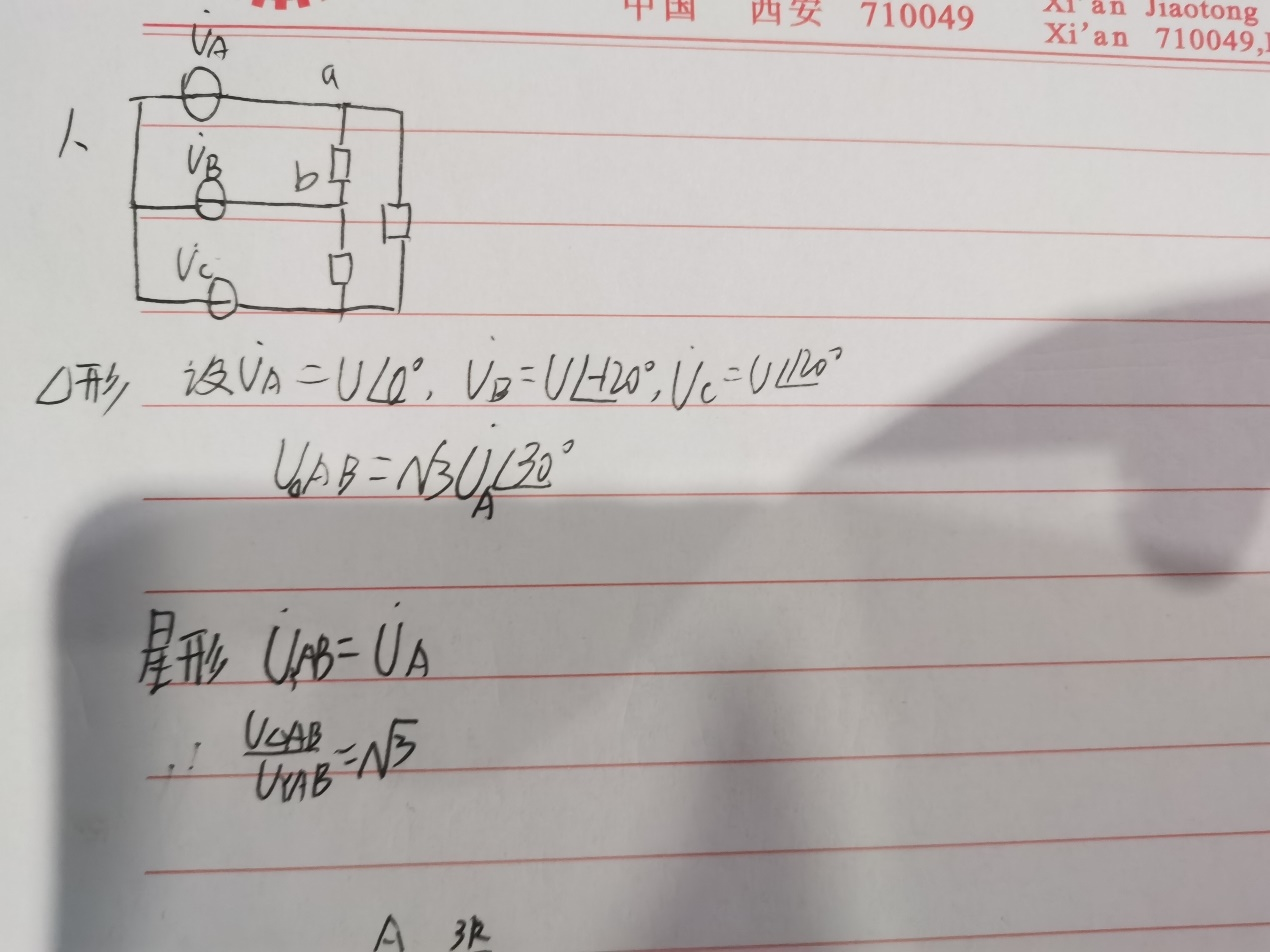 中国 西安 710049
Xi'an Jiaotong
Xi'an 710049,
1、
U̇A
a
U̇B
b
U̇c
△形 设U̇A=U∠0°, U̇B=U∠-120°, U̇c=U∠120°
U△AB=√3U̇A∠30°
星形 U̇YAB=U̇A
∴ U△AB/UYAB=√3
A 3R